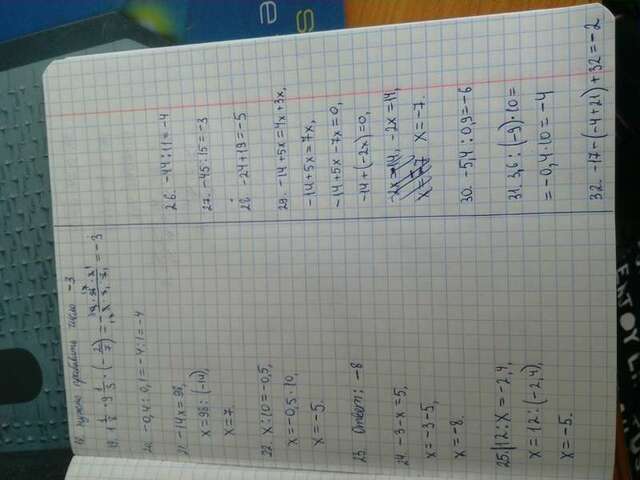 18. нужно прибавить число -3
19. 1 1/6 · 9 1/3 · (-2/7) = = -3
20. -0,4 : 0,1 = -4 : 1 = -4
21. -14x = 98,
x = 98 : (-14),
x = 7.
22. x : 10 = -0,5,
x = -0,5 · 10,
x = -5.
23. Ответ: -8
24. -3 - x = 5,
x = -3 - 5,
x = -8.
25. 12 : x = -2,4,
x = 12 : (-2,4),
x = -5.
26. -44 : 11 = -4
27. -45 : 15 = -3
28. -24 + 19 = -5
29. -14 + 5x = 4x + 3x,
-14 + 5x = 7x,
-14 + 5x - 7x = 0,
-14 + (-2x) = 0,
-2x = 14,
x = -7.
30. -5,4 : 0,9 = -6
31. 3,6 : (-9) · 10 =
= -0,4 · 10 = -4
32. -17 - (-4 + 21) + 32 = -2